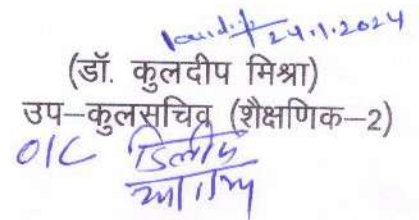 24.1.2024
(डॉ. कुलदीप मिश्रा)
उप–कुलसचिव (शैक्षणिक–2)
OIC